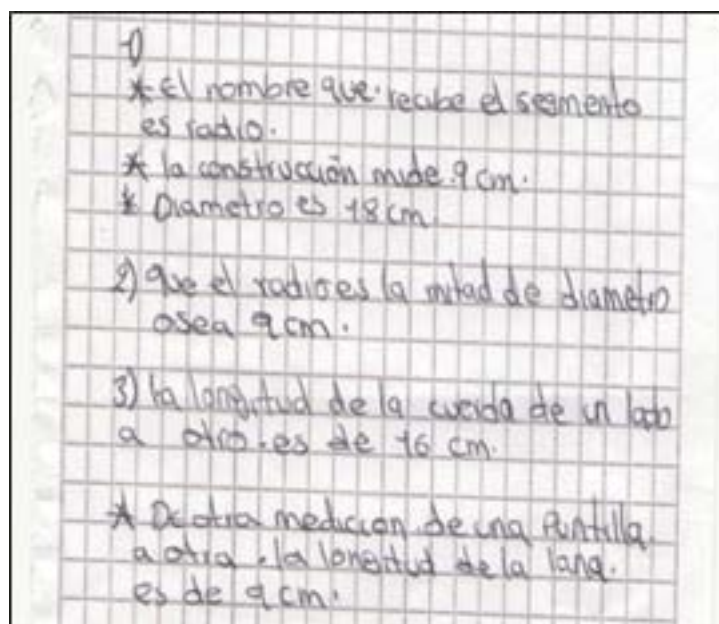 1)
* El nombre que recibe el segmento
es radio.
* la construcción mide 9 cm.
* Diametro es 18 cm.
2) que el radio es la mitad de diametro
osea 9 cm.
3) la longitud de la cuerda de un lado
a otro. es de 16 cm.
* De otra medicion de una Puntilla
a otra. la longitud de la lana.
es de 9 cm.